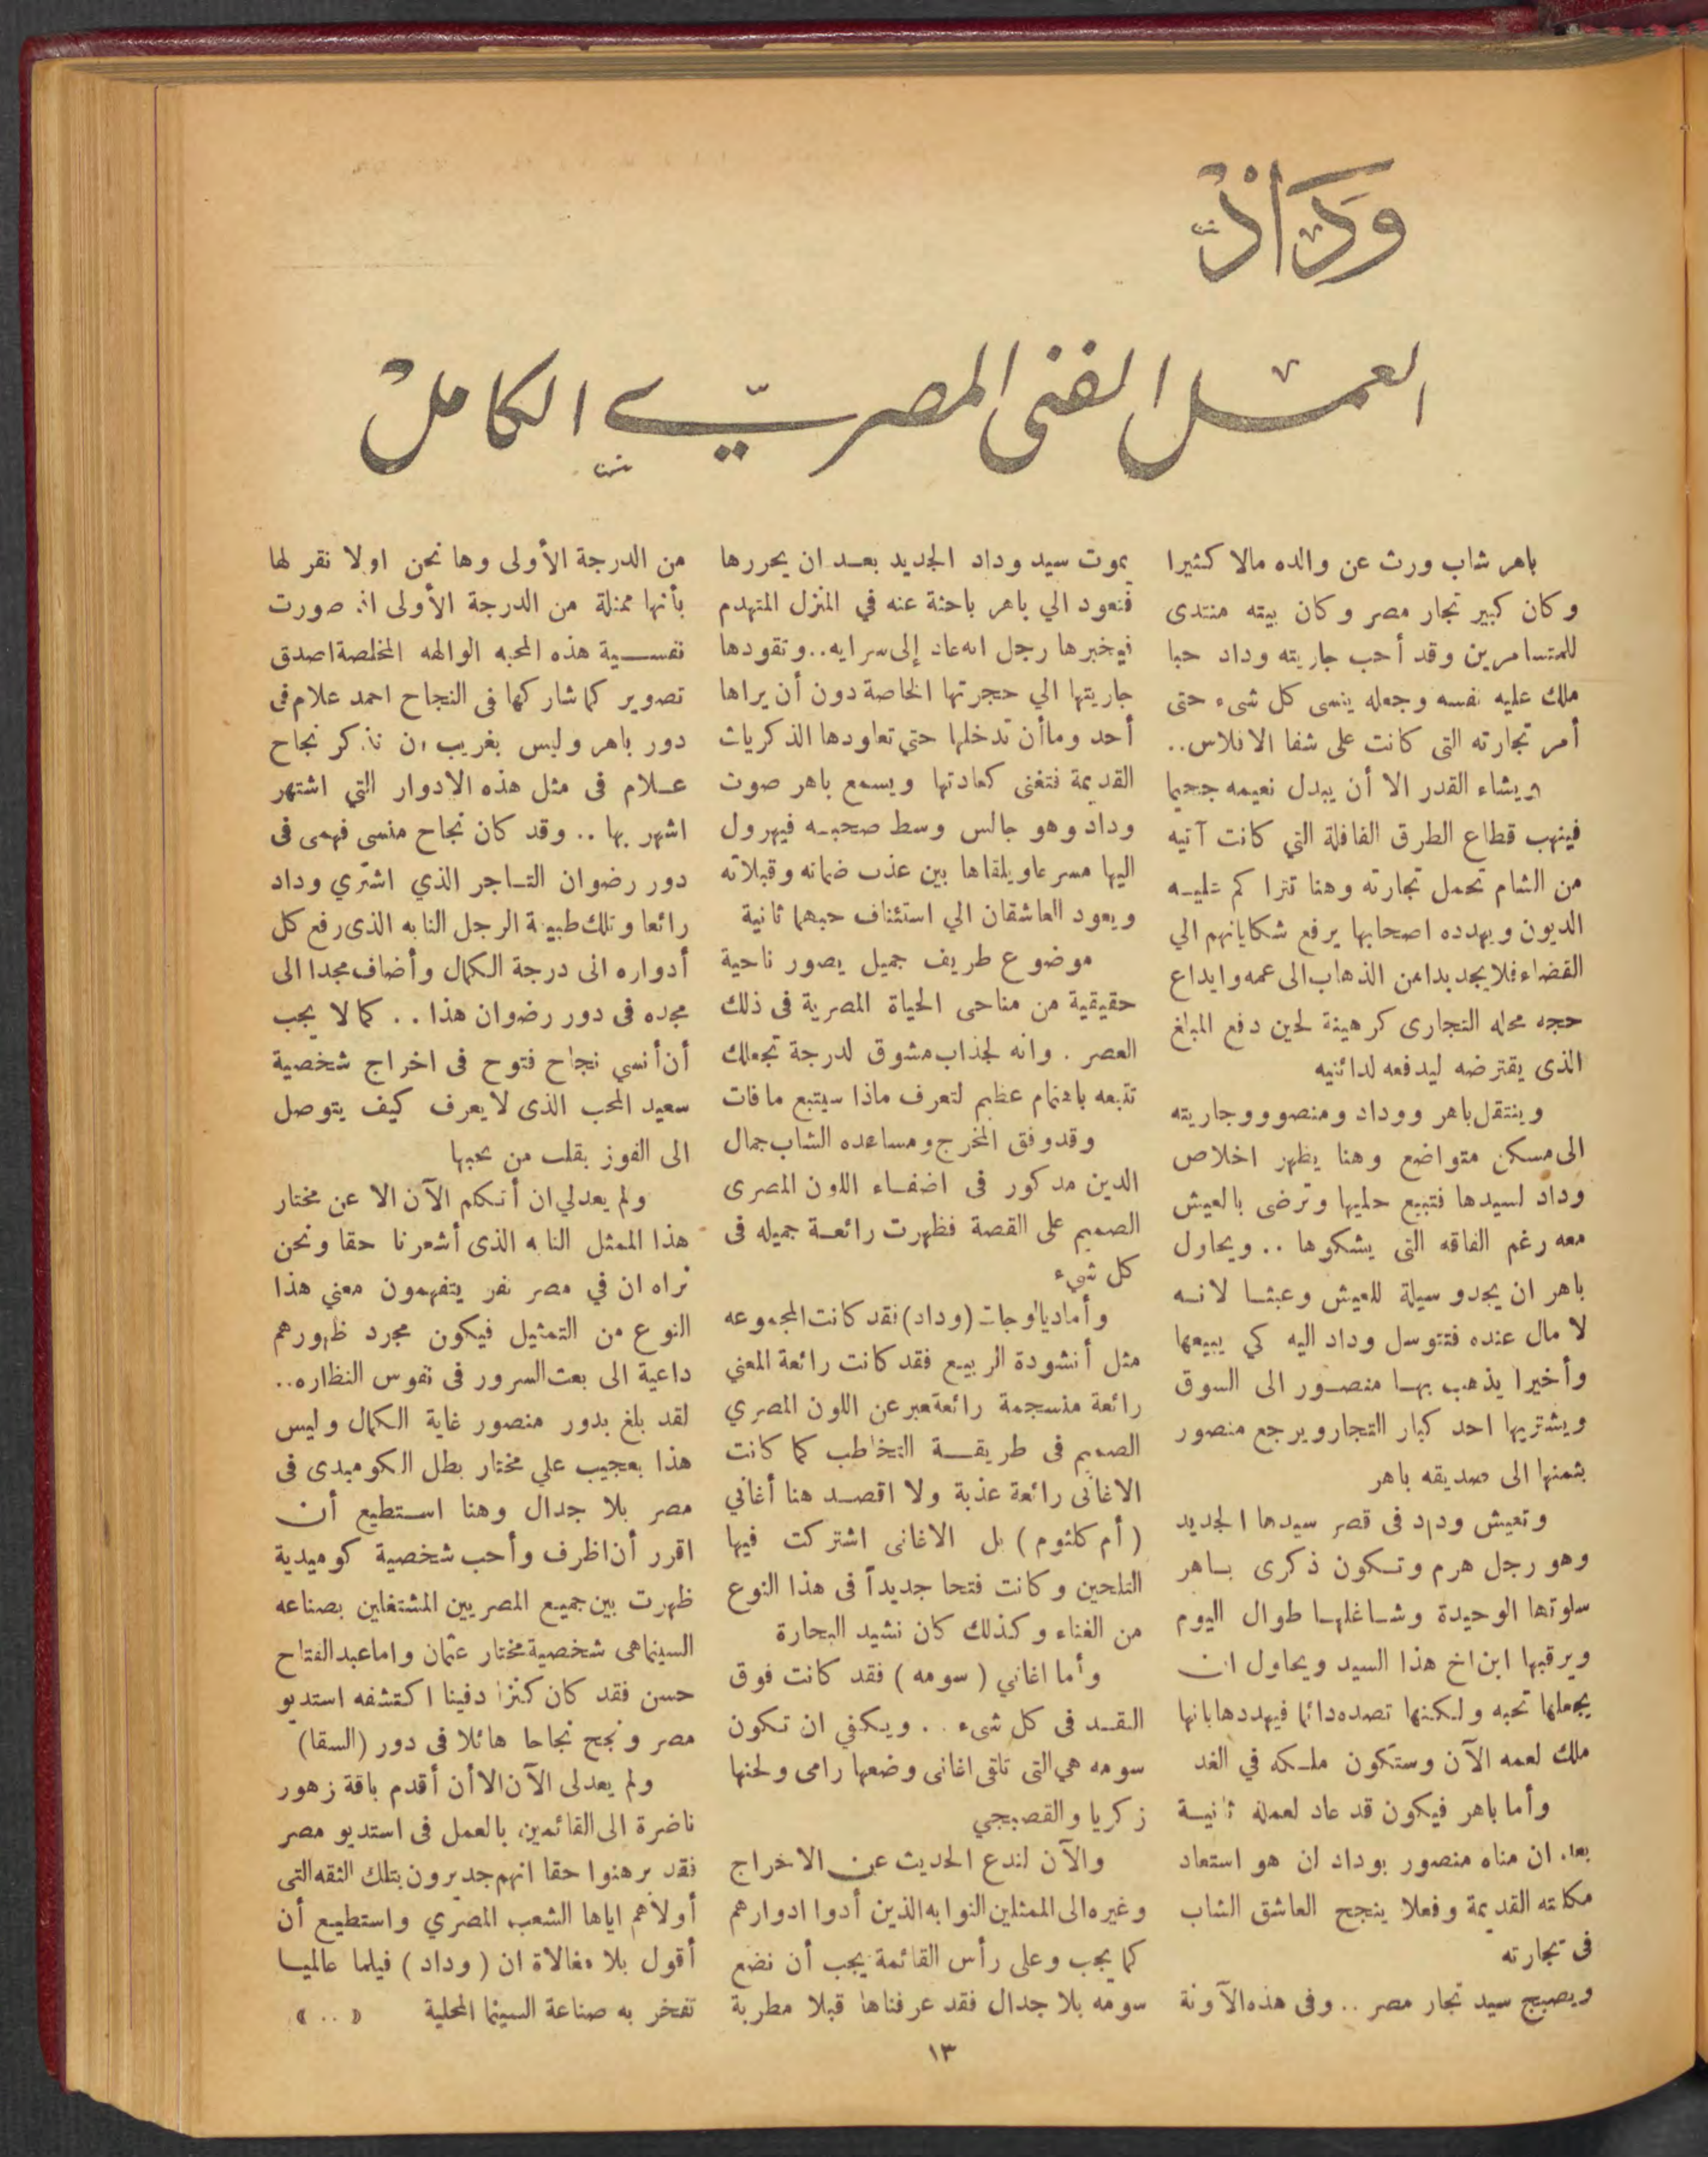 وداد
العمل الفني المصري الكامل
باهر شاب ورث عن والده مالا كثيرا
وكان كبير تجار مصر وكان بيته منتدى
للمتسامرين وقد أحب جاريته وداد حبا
ملك عليه نفسه وجعله ينسى كل شىء حتى
أمر تجارته التى كانت على شفا الافلاس..
ويشاء القدر الا أن يبدل نعيمه جحيما
فينهب قطاع الطرق القافلة التي كانت آتيه
من الشام تحمل تجارته وهنا تتراكم عليه
الديون ويهدده اصحابها برفع شكاياتهم الي
القضاء فلا يجد بدا من الذهاب الى عمه وايداع
حجه محله التجارى كرهينة لحين دفع المبلغ
الذى يقترضه ليدفعه لدائنيه
وينتقل باهر ووداد ومنصوو وجاريته
الى مسكن متواضع وهنا يظهر اخلاص
وداد لسيدها فتبيع حليها وترضى بالعيش
معه رغم الفاقه التى يشكوها .. ويحاول
باهر ان يجد وسيلة للعيش وعبثا لانه
لا مال عنده فتتوسل وداد اليه كي يبيعها
وأخيرا يذهب بها منصور الى السوق
ويشتريها احد كبار التجار ويرجع منصور
بثمنها الى صديقه باهر
وتعيش وداد فى قصر سيدها الجديد
وهو رجل هرم وتكون ذكرى باهر
سلوتها الوحيدة وشاغلها طوال اليوم
ويرقبها ابن اخ هذا السيد ويحاول ان
يجعلها تحبه ولكنها تصده دائما فيهددها بانها
ملك لعمه الآن وستكون ملكه في الغد
وأما باهر فيكون قد عاد لعمله ثانية
بعد ان مناه منصور بوداد ان هو استعاد
مكانته القديمة وفعلا ينجح العاشق الشاب
فى تجارته
ويصبح سيد تجار مصر .. وفى هذه الآونة
يموت سيد وداد الجديد بعد ان يحررها
فتعود الي باهر باحثة عنه في المنزل المتهدم
فيخبرها رجل انه عاد إلى سرايه.. وتقودها
جاريتها الي حجرتها الخاصة دون أن يراها
أحد وما أن تدخلها حتي تعاودها الذكريات
القديمة فتغنى كعادتها ويسمع باهر صوت
وداد وهو جالس وسط صحبه فيهرول
اليها مسرعا ويلقاها بين عذب ضمانه وقبلاته
ويعود العاشقان الي استئناف حبهما ثانية
موضوع طريف جميل يصور ناحية
حقيقية من مناحى الحياة المصرية فى ذلك
العصر . وانه لجذاب مشوق لدرجة تجعلك
تتبعه باهتمام عظيم لتعرف ماذا سيتبع مافات
وقد وفق المخرج ومساعده الشاب جمال
الدين مدكور فى اضفاء اللون المصرى
الصميم على القصة فظهرت رائعة جميله فى
كل شيء
وأما ديالوجات (وداد) فقد كانت المجموعه
مثل أنشودة الربيع فقد كانت رائعة المعني
رائعة منسجمة رائعة عبر عن اللون المصري
الصميم فى طريقة التخاطب كما كانت
الاغانى رائعة عذبة ولا اقصد هنا أغاني
(أم كلثوم) بل الاغانى اشتركت فيها
التلحين وكانت فتحا جديداً فى هذا النوع
من الغناء وكذلك كان نشيد البحارة
وأما اغاني (سومه) فقد كانت فوق
النقد فى كل شىء .. ويكفي ان تكون
سومه هي التى تلقى اغانى وضعها رامى ولحنها
زكريا والقصبجي
والآن لندع الحديث عن الاخراج
وغيره الى الممثلين النوابه الذين أدوا ادوارهم
كما يجب وعلى رأس القائمة يجب أن نضع
سومه بلا جدال فقد عرفناها قبلا مطربة
من الدرجة الأولى وها نحن اولا نقر لها
بأنها ممثلة من الدرجة الأولى اذ صورت
نفسية هذه المحبه الوالهه المخلصة اصدق
تصوير كما شاركها فى النجاح احمد علام فى
دور باهر وليس بغريب ان نذكر نجاح
علام فى مثل هذه الادوار التي اشتهر
اشهر بها .. وقد كان نجاح منسى فهمى فى
دور رضوان التاجر الذي اشترى وداد
رائعا وتلك طبيعة الرجل النابه الذى رفع كل
أدواره الى درجة الكمال وأضاف مجدا الى
مجده فى دور رضوان هذا .. كما لا يجب
أن أنسي نجاح فتوح فى اخراج شخصية
سعيد المحب الذى لا يعرف كيف يتوصل
الى الفوز بقلب من يحبها
ولم يعد لي ان أتكلم الآن الا عن مختار
هذا الممثل النابه الذى أشعرنا حقا ونحن
نراه ان في مصر نفر يتفهمون معني هذا
النوع من التمثيل فيكون مجرد ظهورهم
داعية الى بعث السرور فى نفوس النظاره..
لقد بلغ بدور منصور غاية الكمال وليس
هذا بعجيب علي مختار بطل الكوميدى فى
مصر بلا جدال وهنا استطيع أن
اقرر أن اظرف وأحب شخصية كوميدية
ظهرت بين جميع المصريين المشتغلين بصناعه
السينما هى شخصية مختار عثمان واما عبد الفتاح
حسن فقد كان كنزا دفينا اكتشفه استديو
مصر ونجح نجاحا هائلا فى دور (السقا)
ولم يعد لى الآن الا أن أقدم باقة زهور
ناضرة الى القائمين بالعمل فى استديو مصر
فقد برهنوا حقا انهم جديرون بتلك الثقه التى
أولاهم اياها الشعب المصري واستطيع أن
أقول بلا مغالاة ان (وداد) فيلما عالميا
تفخر به صناعة السينما المحلية « .. »
١٣